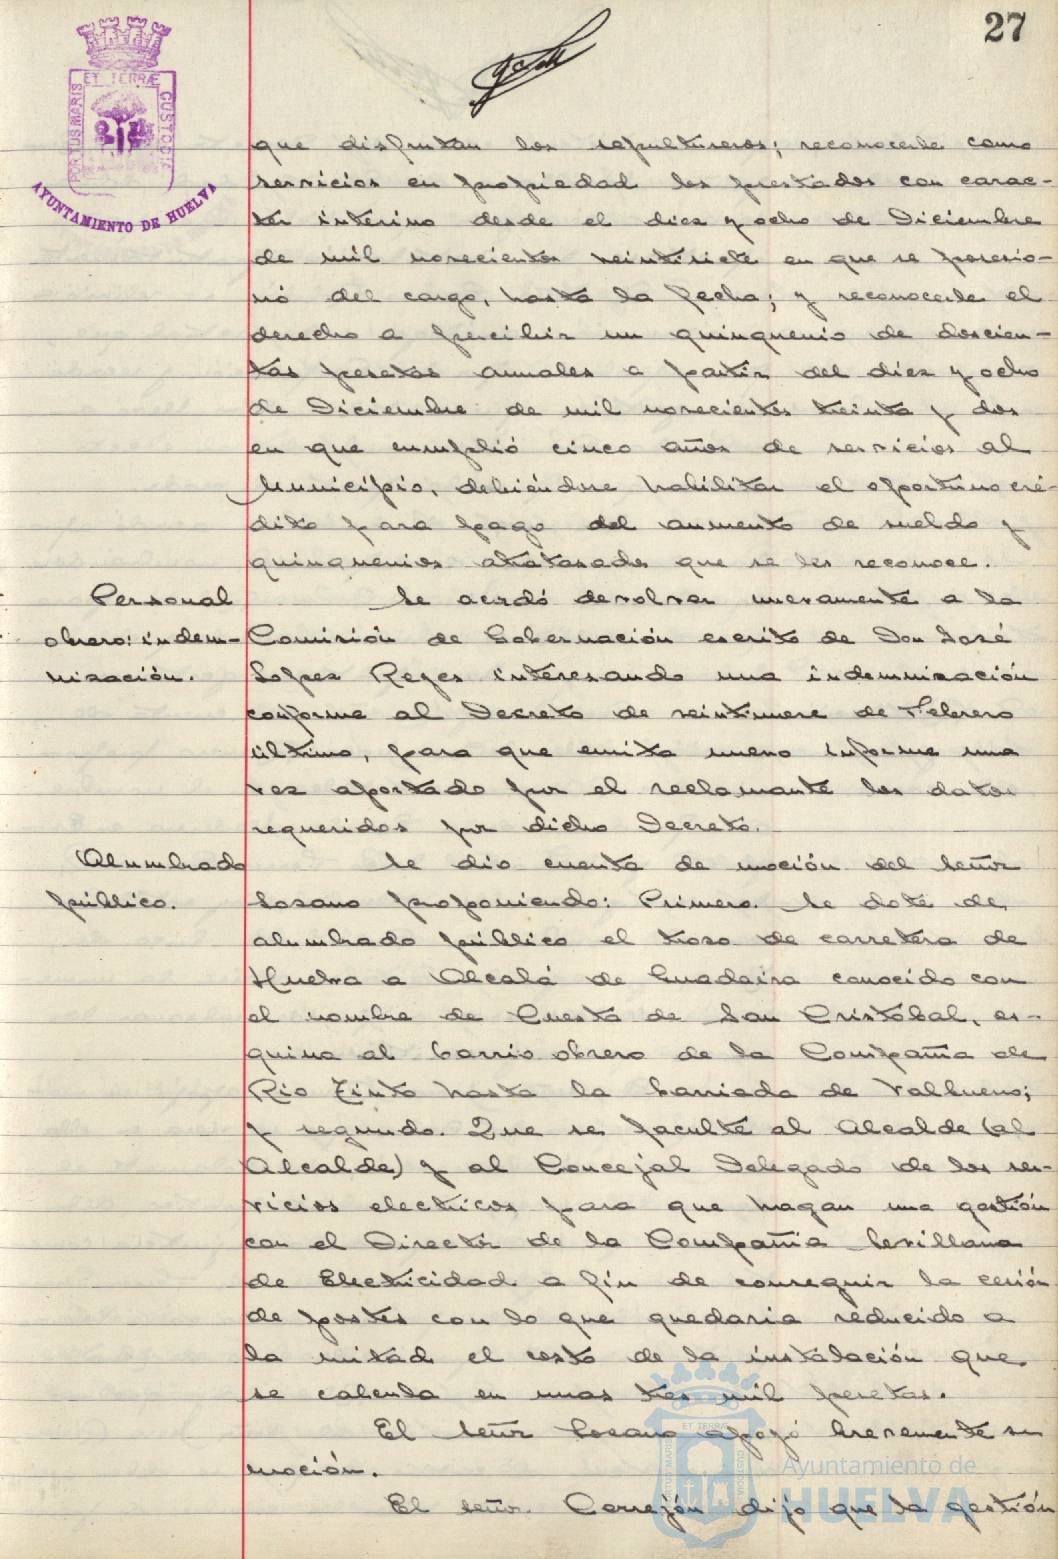 27
ET TERRÆ
PORTUS MARIS
CUSTODIE
AYUNTAMIENTO DE HUELVA
que disfrutan los sepultureros; reconocerle como
servicios en propiedad los prestados con carac-
ter interino desde el diez y ocho de Diciembre
de mil novecientos veintisiete en que se posesio-
nó del cargo, hasta la fecha; y reconocerle el
derecho a percibir un quinquenio de doscien-
tas pesetas anuales a partir del diez y ocho
de Diciembre de mil novecientos treinta y dos
en que cumplió cinco años de servicios al
Municipio, debiéndose habilitar el oportuno cré-
dito para pago del aumento de sueldo y
quinquenios atrasados que se les reconoce.
Personal
obrero: indem-
nización.
Se acordó devolver nuevamente a la
Comisión de Gobernación escrito de Don José
López Reyes interesando una indemnización
conforme al Decreto de veintinueve de Febrero
último, para que emita nuevo informe una
vez aportado por el reclamante los datos
requeridos por dicho Decreto.
Alumbrado
público.
Se dio cuenta de moción del Señor
Lozano proponiendo: Primero. Se dote de
alumbrado público el trozo de carretera de
Huelva a Alcalá de Guadaira conocido con
el nombre de Cuesta de San Cristóbal, es-
quina al barrio obrero de la Compañía de
Rio Tinto hasta la barriada de Valbueno;
y segundo. Que se faculte al Alcalde (al
Alcalde) y al Concejal Delegado de los ser-
vicios electricos para que hagan una gestión
con el Director de la Compañía Sevillana
de Electricidad a fin de conseguir la cesión
de postes con lo que quedaria reducido a
la mitad el costo de la instalación que
se calcula en unas tres mil pesetas.
El señor Lozano apoyó brevemente su
moción.
El señor Cerrejón dijo que la gestión
Ayuntamiento de
HUELVA